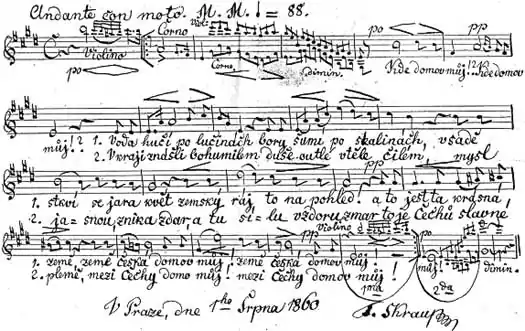 Andante con moto. M. M. ♩ = 88.
Corno Viol: po pp
Violino Corno dimin. Kde domov můj!? Kde domov
po
můj!? 1. Voda hučí po lučinách bory šumí po skalinách, v sadě
2. V kraji znáš-li bohumilém duše outlé v těle čilém, mysl
pp
1. stkví se jara květ zemský ráj to na pohled! a to jest ta krásná,
2. ja= snou, znik a zdar, a tu sí= lu vzdoru zmar to je Čechů slavné
Violino pp po
1. země, země česká domov můj! země česká, domov můj!
2. plémě, mezi Čechy domov můj! mezi Čechy domov můj!
můj! dimin.
1ma 2da
V Praze, dne 1ho Srpna 1860 F. Škraup